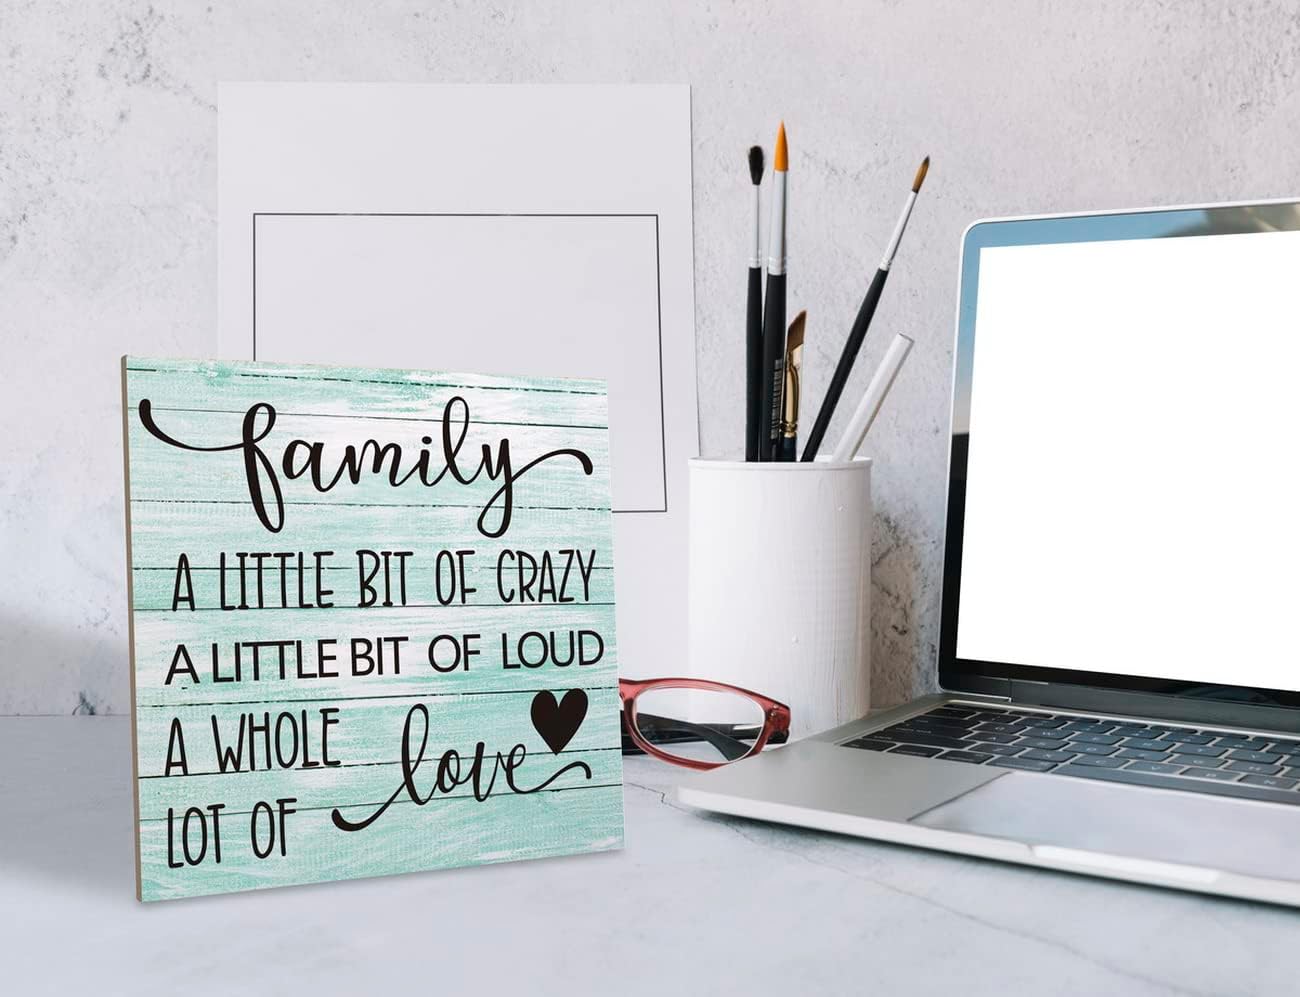 family
A LITTLE BIT OF CRAZY
A LITTLE BIT OF LOUD
A WHOLE
LOT OF love